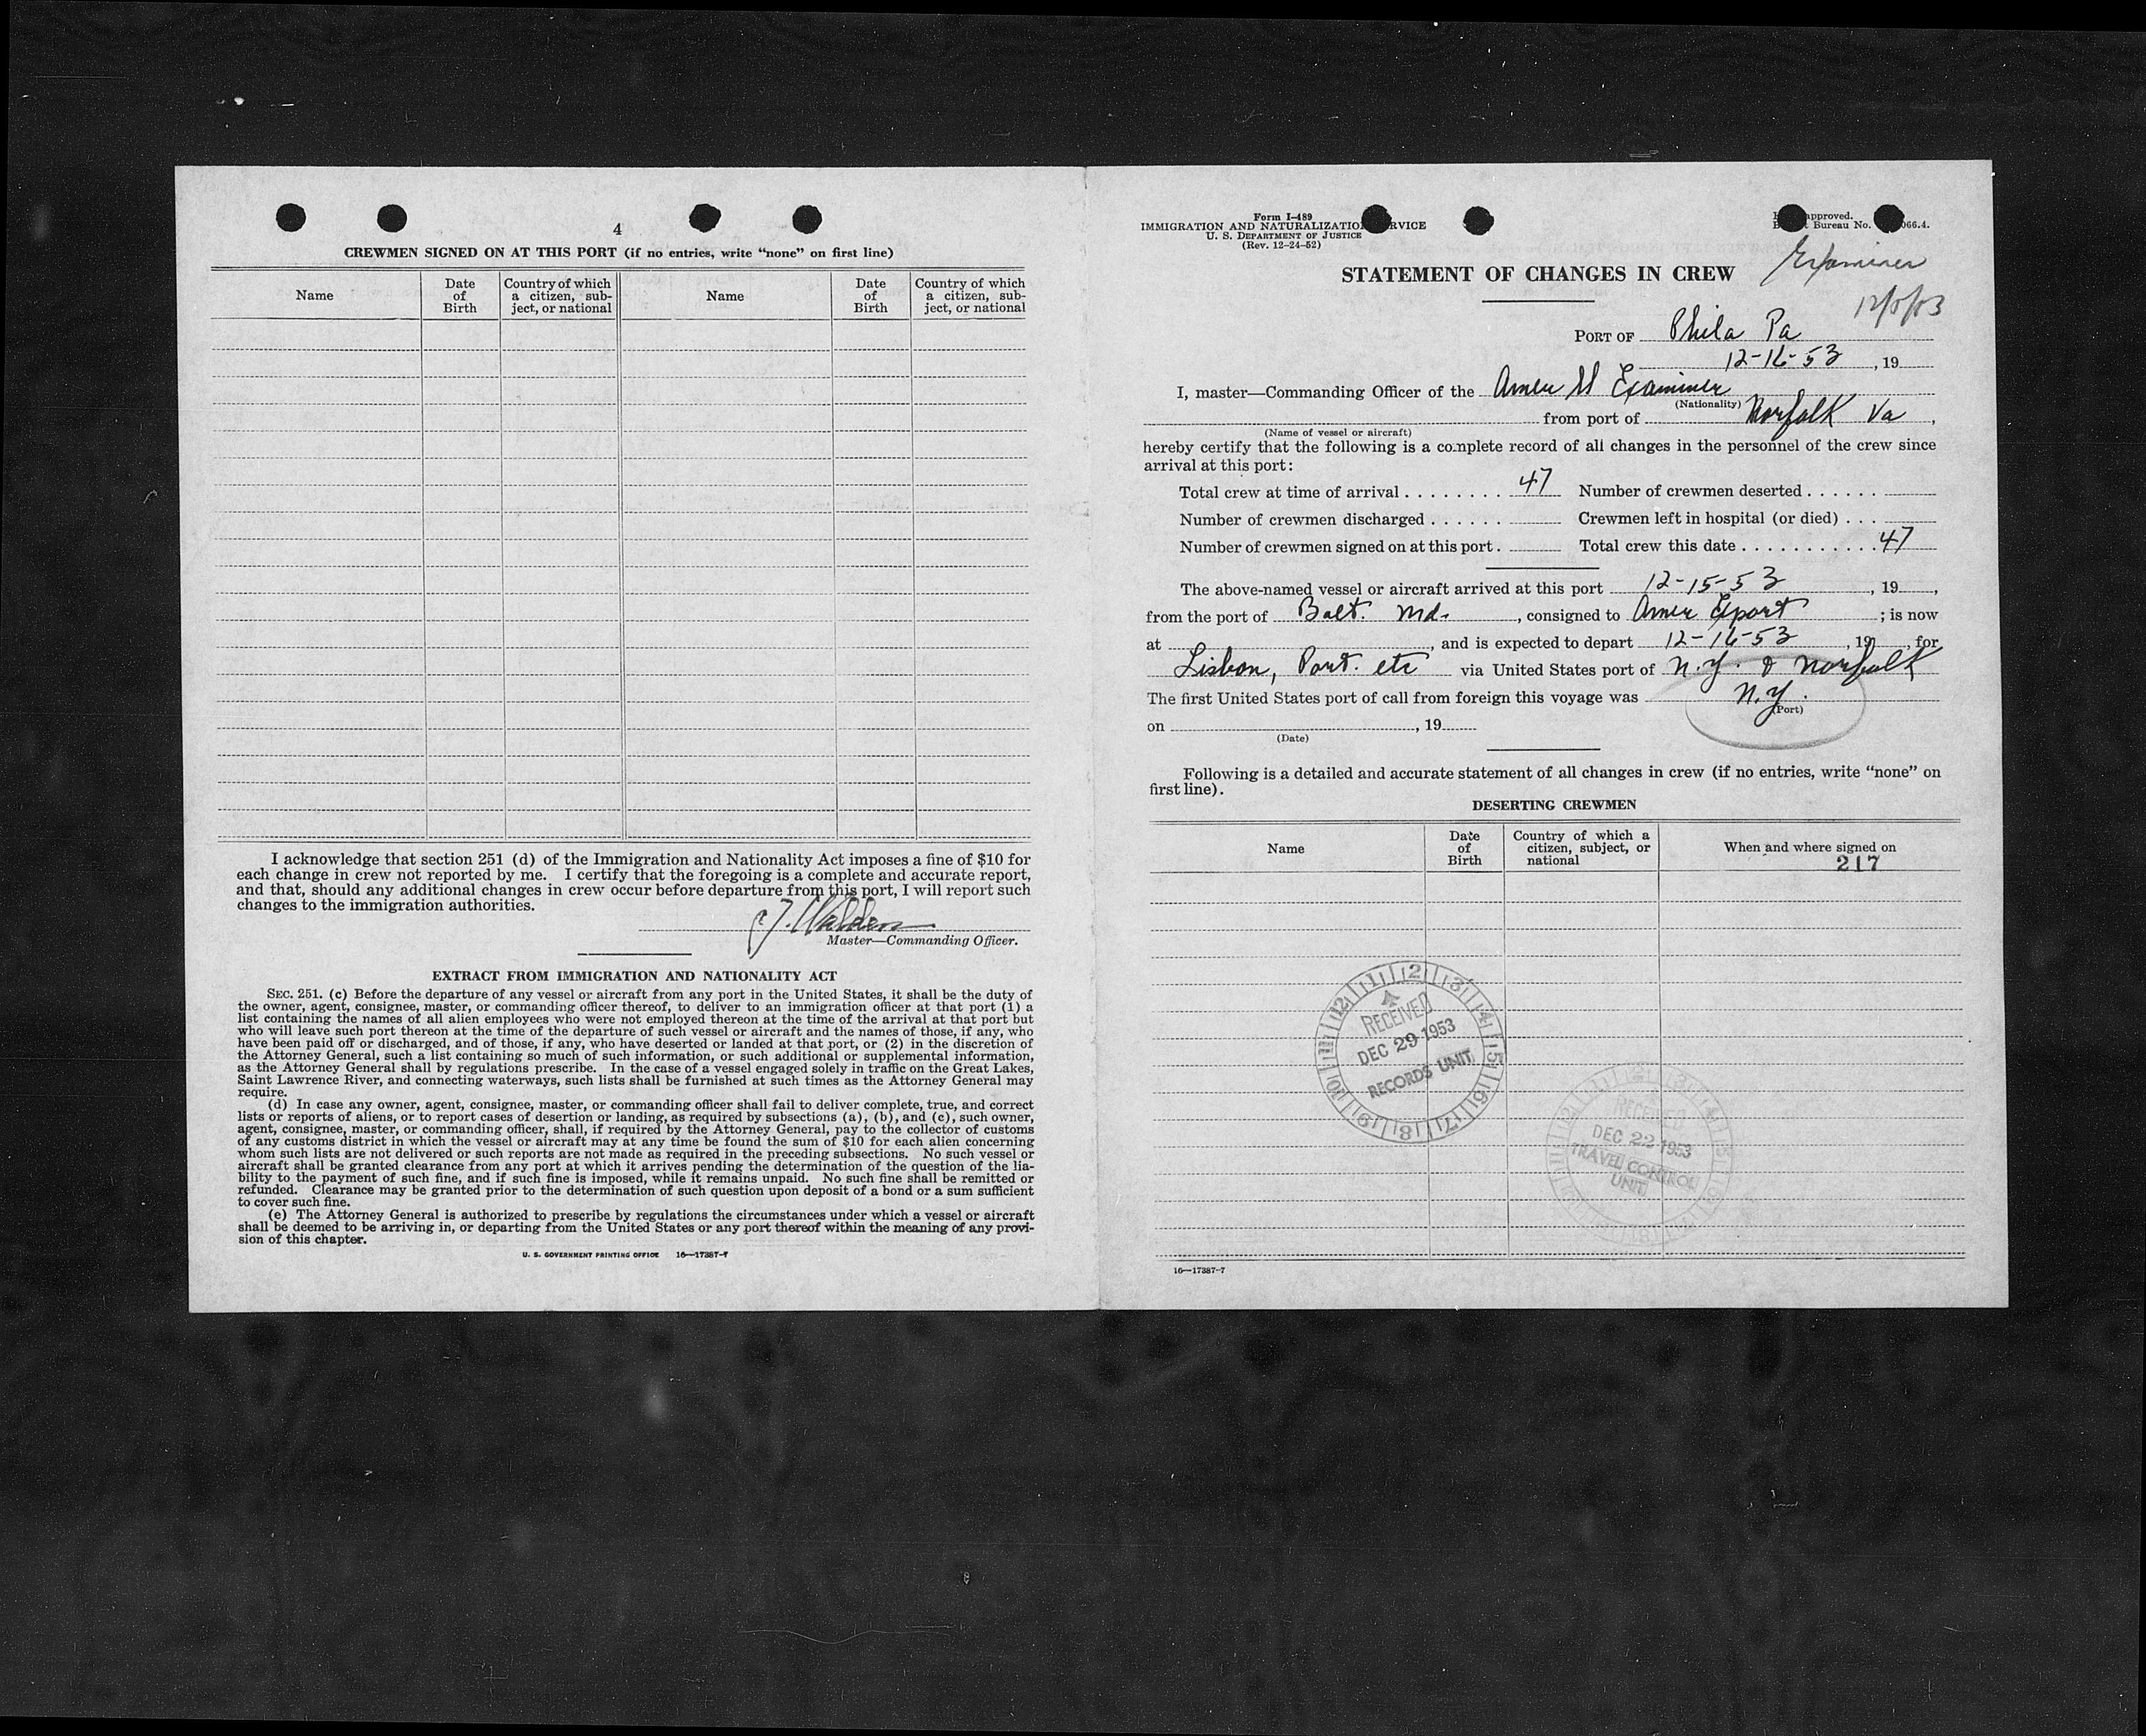 4
CREWMEN SIGNED ON AT THIS PORT (if no entries, write "none" on first line)
Name
Date of Birth
Country of which a citizen, sub-ject, or national
Name
Date of Birth
Country of which a citizen, sub-ject, or national
I acknowledge that section 251 (d) of the Immigration and Nationality Act imposes a fine of $10 for
each change in crew not reported by me. I certify that the foregoing is a complete and accurate report,
and that, should any additional changes in crew occur before departure from this port, I will report such
changes to the immigration authorities.
Master—Commanding Officer.
EXTRACT FROM IMMIGRATION AND NATIONALITY ACT
SEC. 251. (c) Before the departure of any vessel or aircraft from any port in the United States, it shall be the duty of
the owner, agent, consignee, master, or commanding officer thereof, to deliver to an immigration officer at that port (1) a
list containing the names of all alien employees who were not employed thereon at the time of the arrival at that port but
who will leave such port thereon at the time of the departure of such vessel or aircraft and the names of those, if any, who
have been paid off or discharged, and of those, if any, who have deserted or landed at that port, or (2) in the discretion of
the Attorney General, such a list containing so much of such information, or such additional or supplemental information,
as the Attorney General shall by regulations prescribe. In the case of a vessel engaged solely in traffic on the Great Lakes,
Saint Lawrence River, and connecting waterways, such lists shall be furnished at such times as the Attorney General may
require.
(d) In case any owner, agent, consignee, master, or commanding officer shall fail to deliver complete, true, and correct
lists or reports of aliens, or to report cases of desertion or landing, as required by subsections (a), (b), and (c), such owner,
agent, consignee, master, or commanding officer, shall, if required by the Attorney General, pay to the collector of customs
of any customs district in which the vessel or aircraft may at any time be found the sum of $10 for each alien concerning
whom such lists are not delivered or such reports are not made as required in the preceding subsections. No such vessel or
aircraft shall be granted clearance from any port at which it arrives pending the determination of the question of the lia-
bility to the payment of such fine, and if such fine is imposed, while it remains unpaid. No such fine shall be remitted or
refunded. Clearance may be granted prior to the determination of such question upon deposit of a bond or a sum sufficient
to cover such fine.
(e) The Attorney General is authorized to prescribe by regulations the circumstances under which a vessel or aircraft
shall be deemed to be arriving in, or departing from the United States or any port thereof within the meaning of any provi-
sion of this chapter.
U. S. GOVERNMENT PRINTING OFFICE 16—17387-7
Form I-489
IMMIGRATION AND NATURALIZATIO RVICE
U. S. DEPARTMENT OF JUSTICE
(Rev. 12-24-52)
approved.
Bureau No. 066.4.
Examiner
STATEMENT OF CHANGES IN CREW
PORT OF Phila Pa
12-16-53, 19
I, master—Commanding Officer of the Amer Examiner
(Nationality)
from port of Norfolk Va,
(Name of vessel or aircraft)
hereby certify that the following is a complete record of all changes in the personnel of the crew since
arrival at this port:
Total crew at time of arrival . . . . . . . . 47 Number of crewmen deserted . . . . . .
Number of crewmen discharged . . . . . . Crewmen left in hospital (or died) . . .
Number of crewmen signed on at this port. Total crew this date . . . . . . . . . . . 47
The above-named vessel or aircraft arrived at this port 12-15-53, 19,
from the port of Balt. Md., consigned to Amer Export; is now
at , and is expected to depart 12-16-53, 19, for
Lisbon, Port. etc via United States port of N.Y. & Norfolk
The first United States port of call from foreign this voyage was N.Y.
(Port)
on , 19
(Date)
Following is a detailed and accurate statement of all changes in crew (if no entries, write "none" on
first line).
DESERTING CREWMEN
Name
Date of Birth
Country of which a citizen, subject, or national
When and where signed on
217
RECEIVED
DEC 29 1953
RECORDS UNIT
RECEIVED
DEC 22 1953
TRAVEL CONTROL
UNIT
16—17387-7